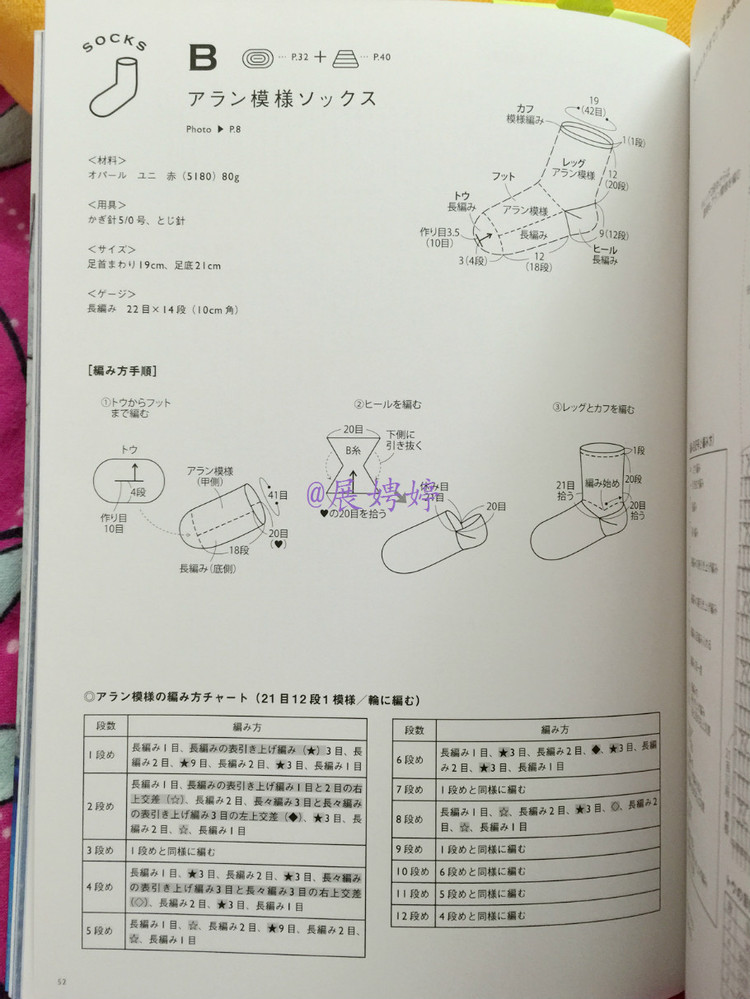 SOCKS
B
… P.32 + … P.40
アラン模様ソックス
Photo ▶ P.8
<材料>
オパール ユニ 赤（5180）80g
<用具>
かぎ針5/0号、とじ針
<サイズ>
足首まわり19cm、足底21cm
<ゲージ>
長編み 22目×14段（10cm角）
19
(42目)
カフ
模様編み
1(1段)
レッグ
アラン模様
12
(20段)
フット
トウ
長編み
アラン模様
作り目3.5
(10目)
長編み
9(12段)
ヒール
長編み
3(4段)
12
(18段)
[編み方手順]
①トウからフット
まで編む
トウ
4段
作り目
10目
アラン模様
(甲側)
41目
20目
(♥)
18段
長編み(底側)
②ヒールを編む
20目
B糸
下側に
引き抜く
♥の20目を拾う
休み目
20目
③レッグとカフを編む
1段
編み始め
20段
21目
拾う
20目
拾う
@展娉婷
◎アラン模様の編み方チャート（21目12段1模様／輪に編む）
段数 編み方
1段め 長編み1目、長編みの表引き上げ編み（★）3目、長
編み2目、★9目、長編み2目、★3目、長編み1目
2段め 長編み1目、長編みの表引き上げ編み1目と2目の右
上交差（☆）、長編み2目、長々編み3目と長々編み
の表引き上げ編み3目の左上交差（◆）、★3目、長
編み2目、☆、長編み1目
3段め 1段めと同様に編む
4段め 長編み1目、★3目、長編み2目、★3目、長々編み
の表引き上げ編み3目と長々編み3目の右上交差
（◎）、長編み2目、★3目、長編み1目
5段め 長編み1目、☆、長編み2目、★9目、長編み2目、
☆、長編み1目
段数 編み方
6段め 長編み1目、★3目、長編み2目、◆、★3目、長編
み2目、★3目、長編み1目
7段め 1段めと同様に編む
8段め 長編み1目、☆、長編み2目、★3目、◎、長編み2
目、☆、長編み1目
9段め 1段めと同様に編む
10段め 6段めと同様に編む
11段め 5段めと同様に編む
12段め 4段めと同様に編む
52